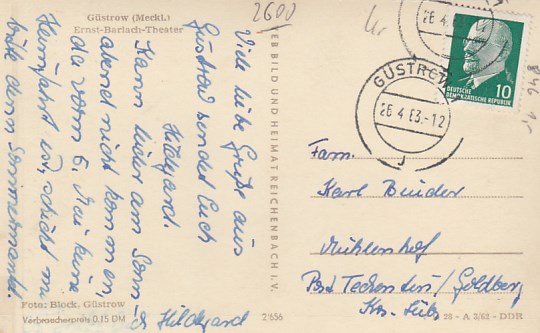 Güstrow (Meckl.)
Ernst-Barlach-Theater
2600
Viele liebe Grüße aus
Güstrow sendet Euch
Hildegard.
Kann leider am Sonn-
abend nicht kommen
da vorm 6. Mai keine
Heimfahrt ist, schickt mir
bitte den Sommermantel.
Hildegard
Foto: Block, Güstrow
Verbraucherpreis 0,15 DM
VEB BILD UND HEIMAT REICHENBACH I. V.
2/656
GÜSTROW
26.4.63.-12
J
26.4.63
DEUTSCHE
DEMOKRATISCHE REPUBLIK
10
Fam.
Karl Binder
Mühlenhof
Post Techentin/Goldberg
Krs. Lübz
28 - A 3/62 - DDR